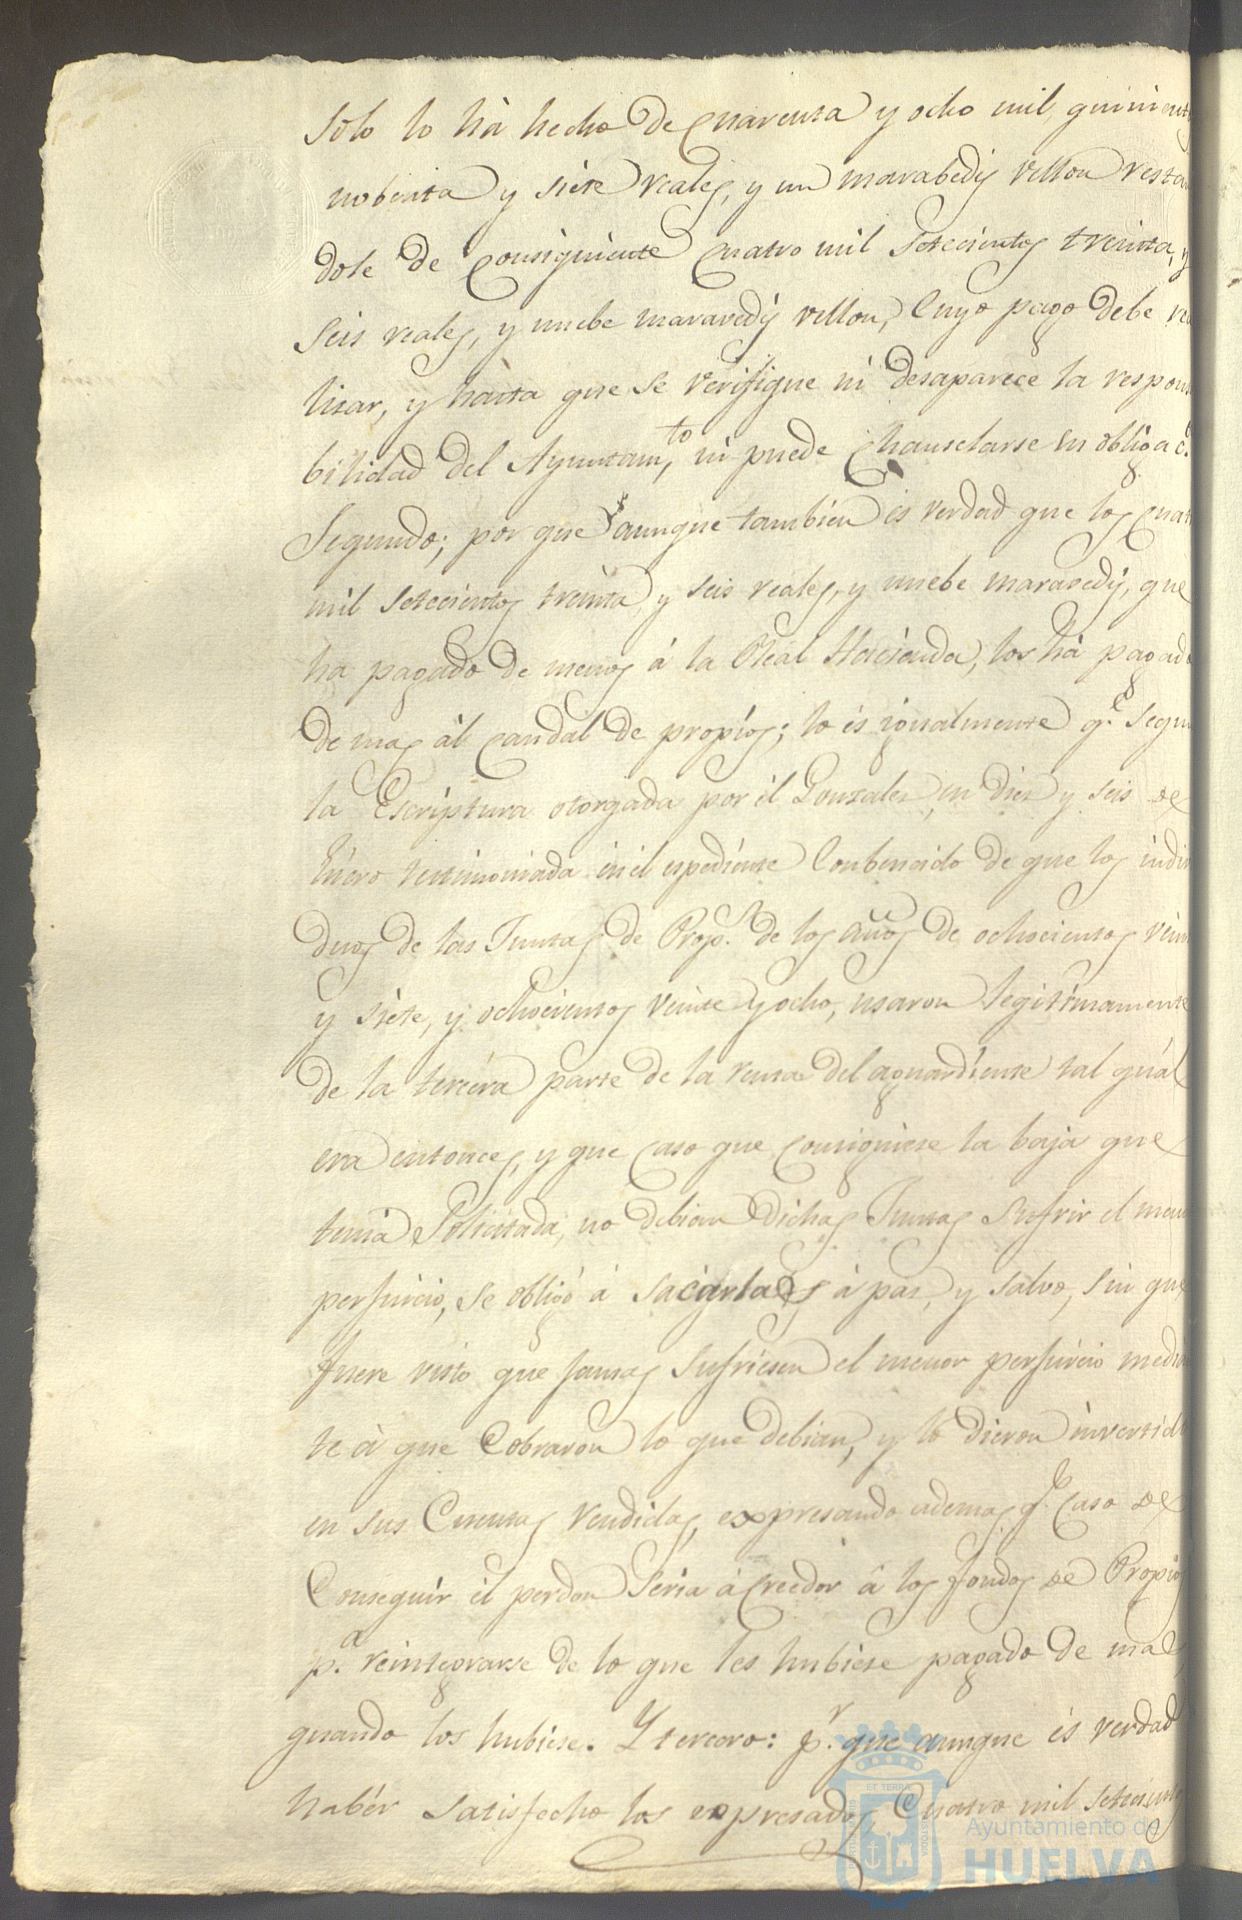 Solo lo há hecho de Cuarenta y ocho mil, quinient
nobenta y siete reales, y un marabedis vellon resta
dole de Consiguiente Cuatro mil Setecientos treinta, y
seis reales, y nuebe maravedis vellon, Cuyo pago debe re
lisar, y hasta que se verifique ni desaparece la respon
bilidad del Ayuntamto, ni puede Chanselarse su obligac.
Segundo; por que aunque tambien és verdad que los Cuat
mil Setecientos treinta y seis reales, y nuebe maravedis, que
ha pagado de menos á la Real Hacienda, los há pagado
de mas ál Caudal de propios; lo és igualmente q.e Segun
la Escriptura otorgada por él Gonzales en dies y seis de
Enero testimoniada en el espediente Combencido de que los indi
duos de las Juntas de Prop.s de los años de ochocientos vein
y siete, y ochocientos veinte y ocho, usaron legitimamente
de la tercera parte de la renta del aguardiente tal qual
era entonces, y que caso que Consiguiese la baja que
tenia Solicitada, no debian dichas Juntas Sufrir el men
perjuicio, se obligó á sacarlas á paz, y salvo, sin que
fuere visto que jamas Sufriesen el menor perjuicio media
te à que Cobraron lo que debian, y lo dieron invertid
en sus Cuentas rendidas, expresando ademas q.e Caso de
Conseguir él perdon Seria ácreedor â los fondos de Propios
p.a reintegrarse de lo que les hubiese pagado de mas,
quando los hubiese. Y tercero: p.r que aunque és verdad
habér Satisfecho los expresados Cuatro mil Setecientos
ET TERRA
CUSTODIA
Ayuntamiento de
HUELVA